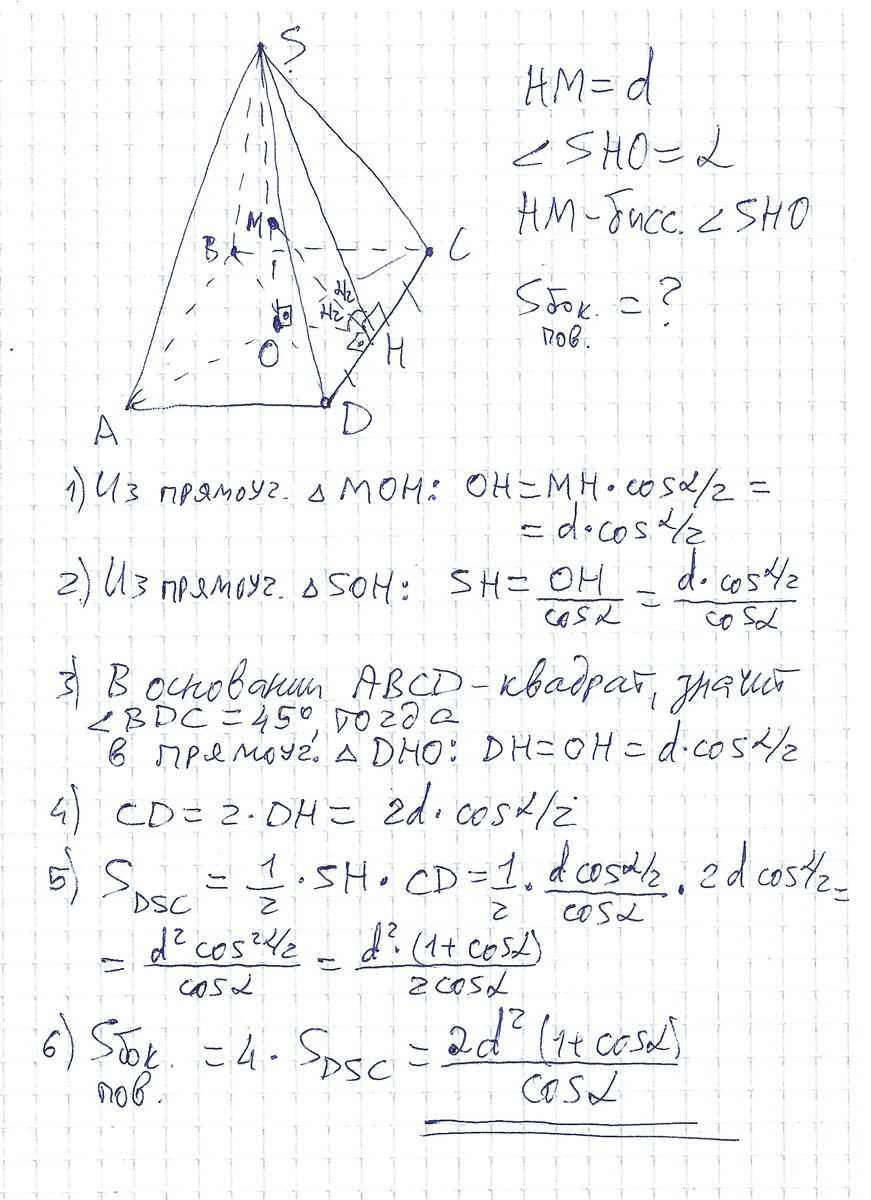 S
HM = d
∠SHO = α
HM - бисс. ∠SHO
Sбок. пов. = ?
M
B
C
α/2
α/2
O
H
A
D
1) Из прямоуг. △ MOH: OH = MH · cos α/2 =
= d · cos α/2
2) Из прямоуг. △ SOH: SH = OH/cos α = d · cos α/2 / cos α
3) В основании ABCD - квадрат, значит
∠BDC = 45°, тогда
в прямоуг. △ DHO: DH = OH = d · cos α/2
4) CD = 2 · DH = 2d · cos α/2
5) S DSC = 1/2 · SH · CD = 1/2 · d cos α/2 / cos α · 2d cos α/2 =
= d² cos² α/2 / cos α = d² · (1 + cos α) / 2 cos α
6) Sбок. пов. = 4 · S DSC = 2d² (1 + cos α) / cos α